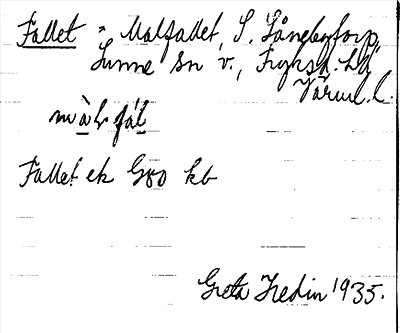 Fallet = Malfallet, S. Lånebytorp,
Lunne sn v., Fryksd. hd
Värml. l.
màl fál
Fallet ek G80 kb
Greta Hedin 1935.